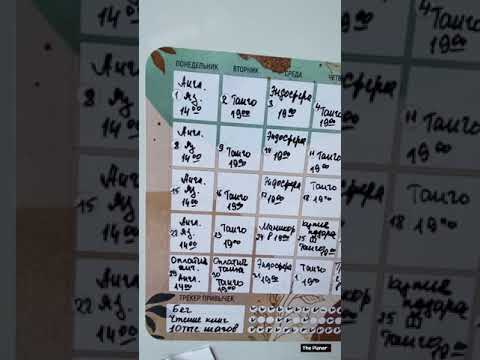 ПОНЕДЕЛЬНИК ВТОРНИК СРЕДА
Англ.
1 Яз.
14 00
2 Танго
19 00
Эндосфера
3
19 00
4 Танго
19 00
Англ.
8 Яз
14 00
9 Танго
19 00
Эндосфера
10 19 00
11 Танго
19 00
Англ.
15 Яз.
14 00
16 Танго
19 00
Эндосфера
17 19 00
Танго
18 19 00
Англ.
22 Яз.
14 00
23 Танго
19 00
Маникюр
24
25
Танго
Оплатить
англ.
29 Англ.
14 00
Оплатить
танго
30 Танго
19 00
Эндосфера
19 00
1 Танго
19 00
ТРЕКЕР ПРИВЫЧЕК
Бег
Чтение книг
10 тыс шагов
The Planer